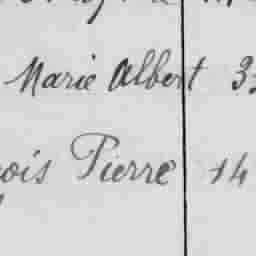 Marie Albert 3
Pierre 14